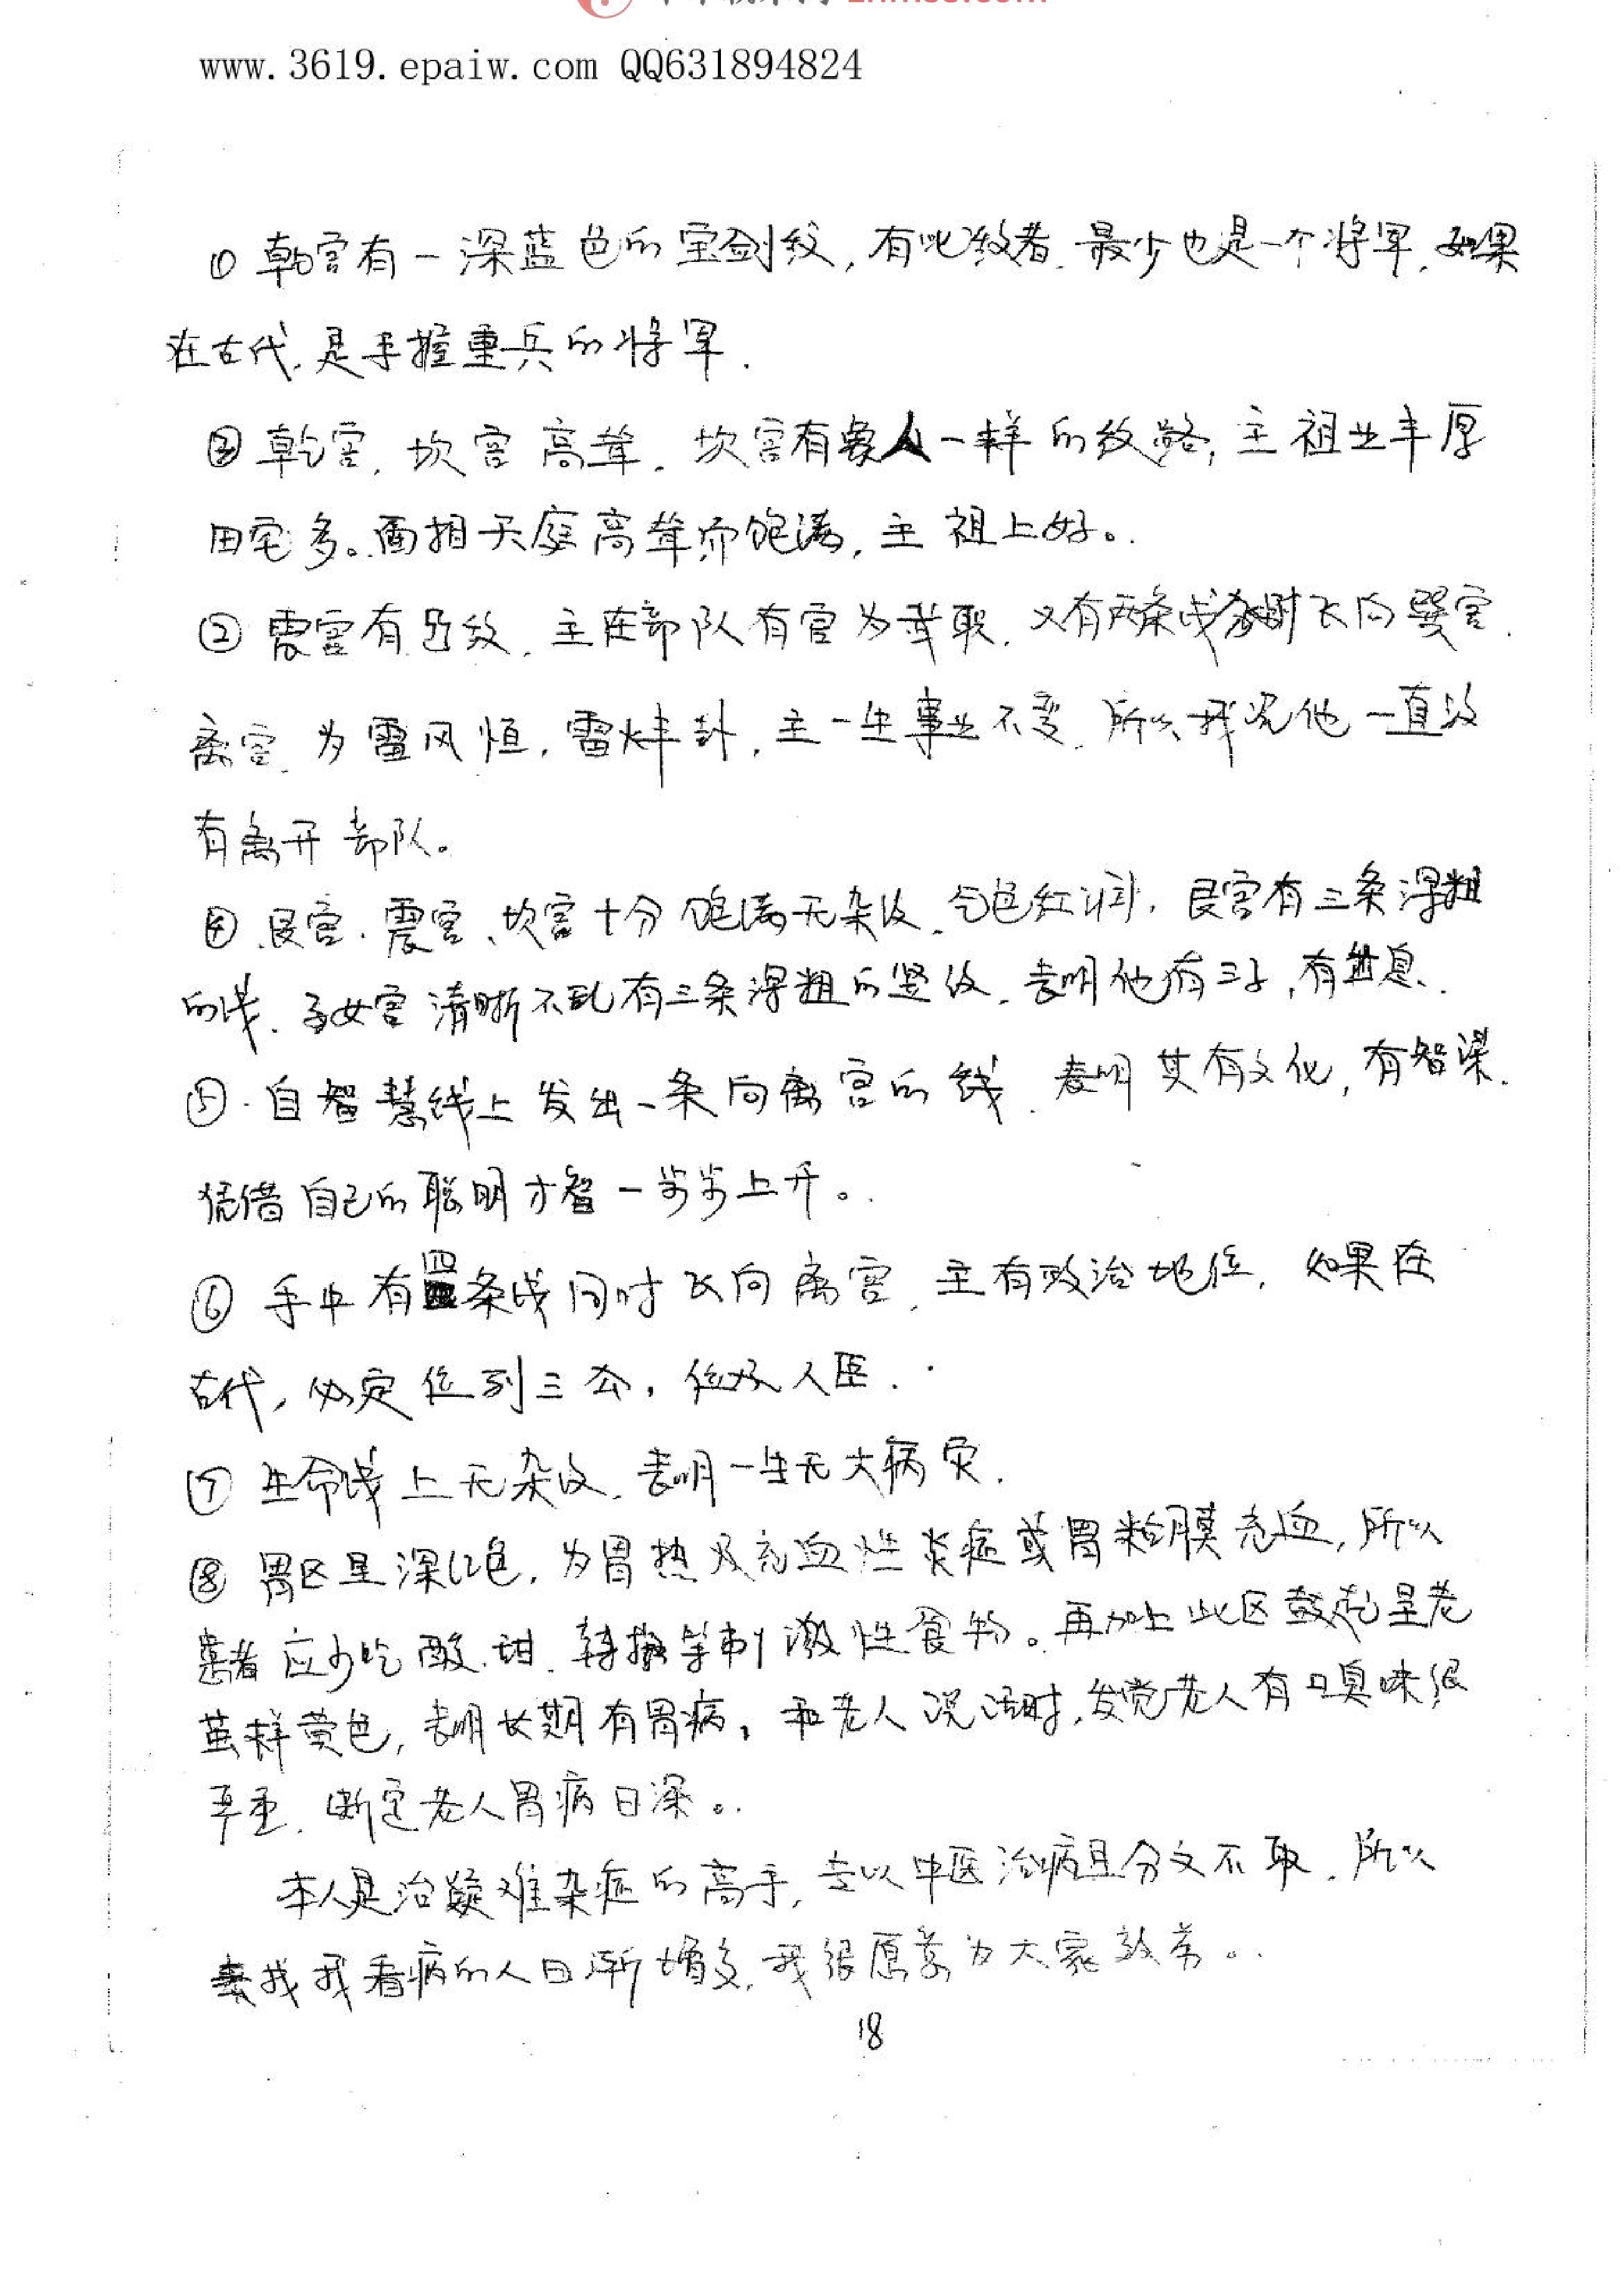 www.3619.epaiw.com QQ631894824
① 乾宫有一深蓝色的宝剑纹,有此纹者.最少也是一个将军.如果
在古代.是手握重兵的将军.
③ 乾宫.坎宫高耸.坎宫有象人一样的纹路,主祖业丰厚
田宅多。面相天庭高耸而饱满,主祖上好。
② 震宫有凸纹.主在部队有官为武职.又有两条线同时飞向巽宫.
离宫.为雷风恒.雷火丰卦.主一生事业不变.所以我说他一直没
有离开部队。
④.艮宫.震宫、坎宫十分饱满无杂纹.气色红润.艮宫有三条深粗
的线.子女宫清晰不乱有三条深粗的竖纹.表明他有三子,有出息.
⑤.自智慧线上发出一条向离宫的线.表明其有文化,有智谋.
凭借自己的聪明才智一步步上升。
⑥ 手中有四条线同时飞向离宫.主有政治地位.如果在
古代,必定位列三公,位极人臣.
⑦ 生命线上无杂纹.表明一生无大病灾.
⑧ 胃区呈深红色.为胃热及充血性炎症或胃粘膜充血,所以
患者应少吃酸.甜.辣等刺激性食物。再加上此区鼓起呈老
茧样黄色,表明长期有胃病,和老人说话时,发觉老人有口臭味很
严重.断定老人胃病日深。
本人是治疑难杂症的高手,专以中医治病且分文不取.所以
来找我看病的人日渐增多,我很愿意为大家效劳。
18